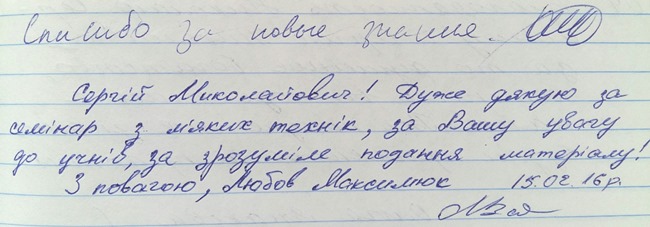 Спасибо за новые знания.
Сергій Миколайович! Дуже дякую за
семінар з м'яких технік, за Вашу увагу
до учнів, за зрозуміле подання матеріалу!
З повагою, Любов Максимюк 15.02.16р.